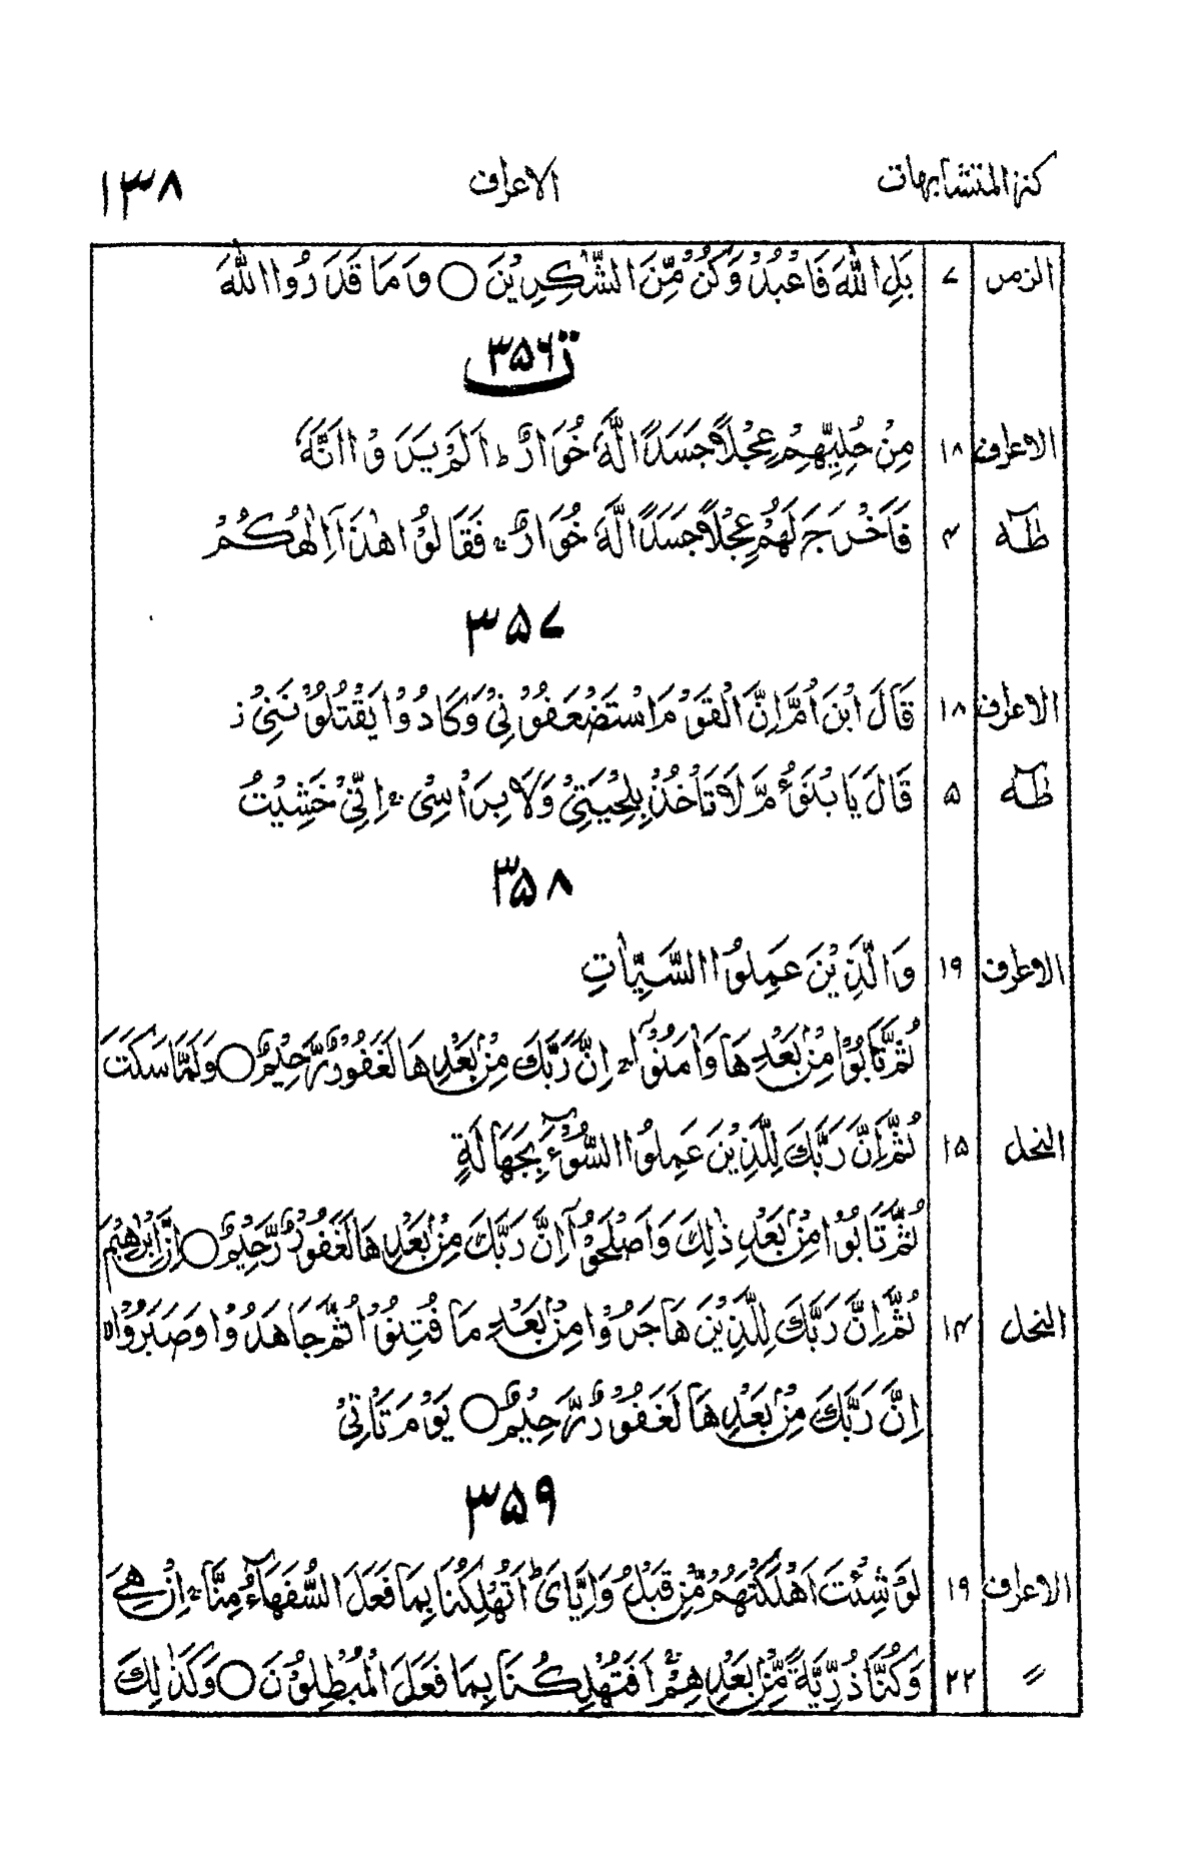 كنز المتشابهات الاعراف ١٣٨
الزمر ٧ بَلِ اللّٰهَ فَاعْبُدْ وَكُنْ مِّنَ الشّٰكِرِيْنَ ○ وَمَا قَدَرُوا اللّٰهَ
ت ٣٥٦
الاعراف ١٨ مِنْ حُلِيِّهِمْ عِجْلًا جَسَدًا لَّهٗ خُوَارٌ ؕ اَلَمْ يَرَوْا اَنَّهٗ
طٰهٰ ٤ فَاَخْرَجَ لَهُمْ عِجْلًا جَسَدًا لَّهٗ خُوَارٌ فَقَالُوْا هٰذَاۤ اِلٰهُكُمْ
٣٥٧
الاعراف ١٨ قَالَ ابْنَ اُمَّ اِنَّ الْقَوْمَ اسْتَضْعَفُوْنِيْ وَكَادُوْا يَقْتُلُوْنَنِيْ ز
طٰهٰ ٥ قَالَ يَابْنَؤُمَّ لَا تَاْخُذْ بِلِحْيَتِيْ وَلَا بِرَاْسِيْ ۚ اِنِّيْ خَشِيْتُ
٣٥٨
الاعراف ١٩ وَالَّذِيْنَ عَمِلُوا السَّيِّاٰتِ
ثُمَّ تَابُوْا مِنْۢ بَعْدِهَا وَاٰمَنُوْۤا ۫ اِنَّ رَبَّكَ مِنْۢ بَعْدِهَا لَغَفُوْرٌ رَّحِيْمٌ ○ وَلَمَّا سَكَتَ
النحل ١٥ ثُمَّ اِنَّ رَبَّكَ لِلَّذِيْنَ عَمِلُوا السُّوْٓءَ بِجَهَالَةٍ
ثُمَّ تَابُوْا مِنْۢ بَعْدِ ذٰلِكَ وَاَصْلَحُوْۤا اِنَّ رَبَّكَ مِنْۢ بَعْدِهَا لَغَفُوْرٌ رَّحِيْمٌ ○ اِنَّ اِبْرٰهِيْمَ
النحل ١٤ ثُمَّ اِنَّ رَبَّكَ لِلَّذِيْنَ هَاجَرُوْا مِنْۢ بَعْدِ مَا فُتِنُوْا ثُمَّ جَاهَدُوْا وَصَبَرُوْۤا
اِنَّ رَبَّكَ مِنْۢ بَعْدِهَا لَغَفُوْرٌ رَّحِيْمٌ ○ يَوْمَ تَاْتِيْ
٣٥٩
الاعراف ١٩ لَوْ شِئْتَ اَهْلَكْتَهُمْ مِّنْ قَبْلُ وَاِيَّايَ ؕ اَتُهْلِكُنَا بِمَا فَعَلَ السُّفَهَآءُ مِنَّا ۚ اِنْ هِيَ
〃 ٢٢ وَكُنَّا ذُرِّيَّةً مِّنْۢ بَعْدِهِمْ ۚ اَفَتُهْلِكُنَا بِمَا فَعَلَ الْمُبْطِلُوْنَ ○ وَكَذٰلِكَ